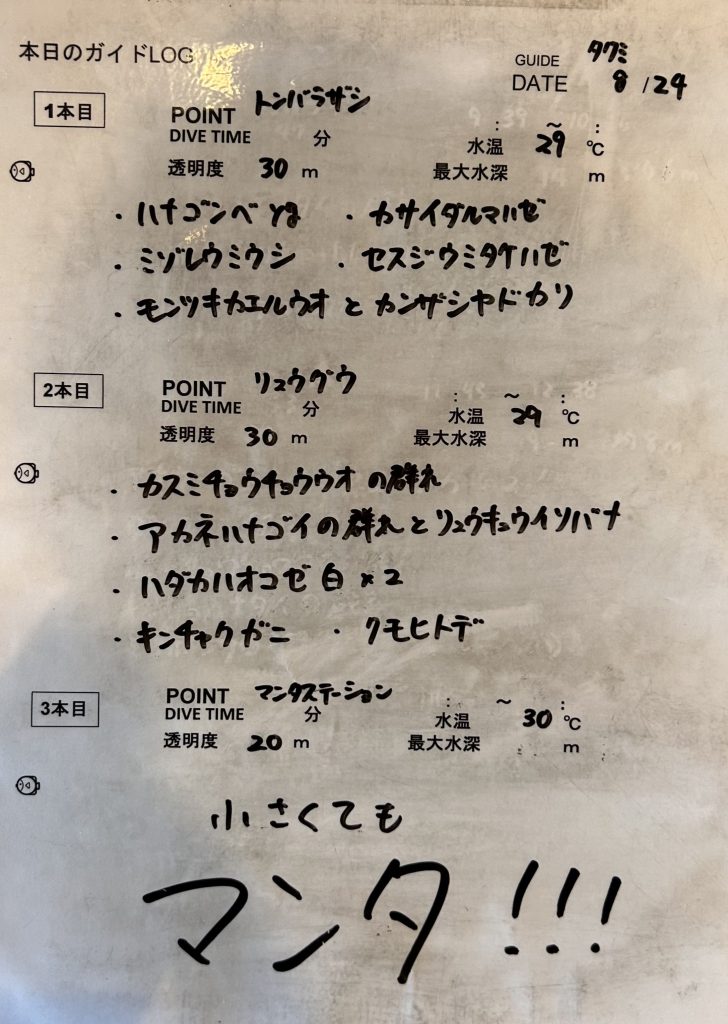 本日のガイドLOG
GUIDE タクミ
DATE 8/24
1本目
POINT トンバラザシ
DIVE TIME 分 : ~ :
水温 29 ℃
透明度 30 m 最大水深 m
・ハナゴンベ yg ・カサイダルマハゼ
・ミゾレウミウシ ・セスジウミタケハゼ
・モンツキカエルウオ と カンザシヤドカリ
2本目
POINT リュウグウ
DIVE TIME 分 : ~ :
水温 29 ℃
透明度 30 m 最大水深 m
・カスミチョウチョウウオ の群れ
・アカネハナゴイの群れとリュウキュウイソバナ
・ハダカハオコゼ 白 ×2
・キンチャクガニ ・クモヒトデ
3本目
POINT マンタステーション
DIVE TIME 分 : ~ :
水温 30 ℃
透明度 20 m 最大水深 m
小さくても
マンタ!!!